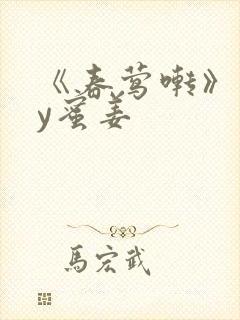 《春莺啭》
y蜜姜
馬宏武